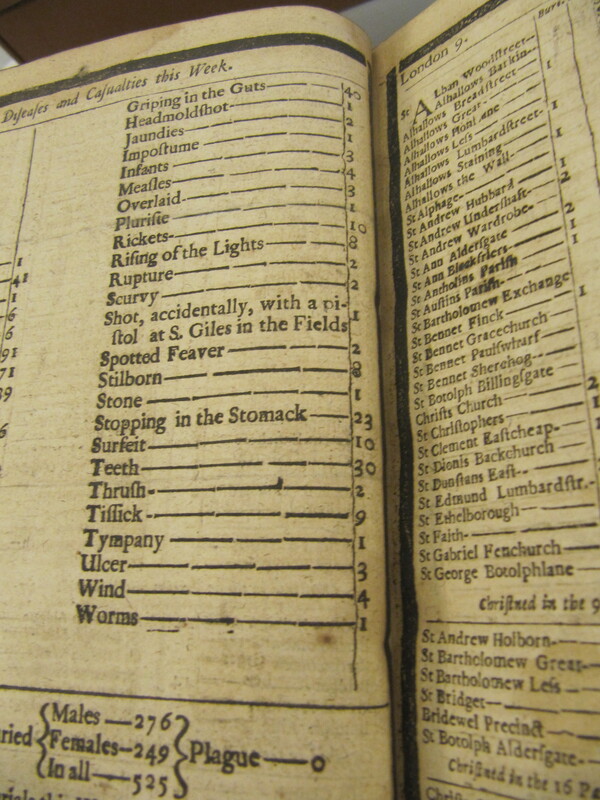 Diſeaſes and Caſualties this Week.
1
41
1
6
6
91
71
39
6
Griping in the Guts 40
Headmoldſhot 1
Jaundies 2
Impoſtume 1
Infants 3
Meaſles 4
Overlaid 3
Pluriſie 1
Rickets 10
Riſing of the Lights 8
Rupture 2
Scurvy 2
Shot, accidentally, with a pi-
ſtol at S. Giles in the Fields 1
Spotted Feaver 2
Stilborn 8
Stone 1
Stopping in the Stomack 23
Surfeit 10
Teeth 30
Thruſh 2
Tiſſick 9
Tympany 1
Ulcer 3
Wind 4
Worms 1
ried
Males 276
Females 249
In all 525
Plague 0
London 9.
St Alban Woodſtreet
Alhallows Barkin
Alhallows Breadſtreet 1
Alhallows Great
Alhallows
Alhallows Leſs 1
Alhallows Lumbardſtreet
Alhallows Staining 1
Alhallows the Wall
St Alphage 1
St Andrew Hubbard 2
St Andrew Underſhaft
St Andrew Wardrobe
St Ann Alderſgate 2
St Ann Blackfriers 1
St Antholins Pariſh
St Auſtins Pariſh
St Bartholomew Exchange
St Bennet Finck 1
St Bennet Gracechurch
St Bennet Paulſwharf
St Bennet Sherehog
St Botolph Billingſgate
Chriſts Church 2
St Chriſtophers 1
St Clement Eaſtcheap 1
St Dionis Backchurch
St Dunſtans Eaſt
St Edmund Lumbardſtr.
St Ethelborough
St Faith
St Gabriel Fenchurch
St George Botolphlane
Chriſtned in the 9
St Andrew Holborn
St Bartholomew Great
St Bartholomew Leſs
St Bridget
Bridewel Precinct
St Botolph Alderſgate
Chriſtned in the 16 Pa